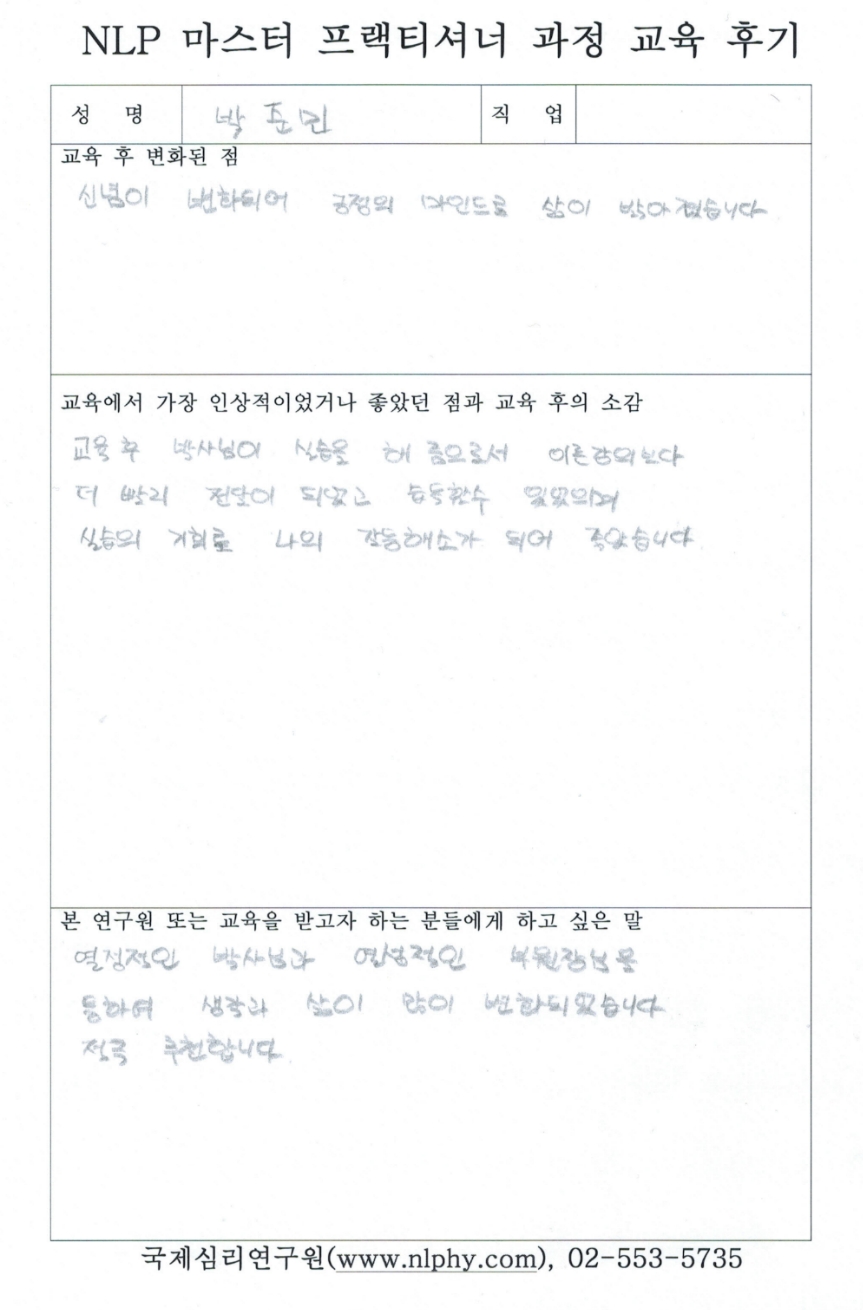 NLP 마스터 프랙티셔너 과정 교육 후기
성 명 박준민 직 업
교육 후 변화된 점
신념이 변화되어 긍정의 마인드로 삶이 밝아졌습니다
교육에서 가장 인상적이었거나 좋았던 점과 교육 후의 소감
교육 후 박사님이 실습을 해 줌으로서 이론강의보다
더 빨리 전달이 되었고 습득할수 있었으며
실습의 기회로 나의 갈등해소가 되어 좋았습니다
본 연구원 또는 교육을 받고자 하는 분들에게 하고 싶은 말
열정적인 박사님과 부원장님을
통하여 생각과 삶이 많이 변화되었습니다
적극 추천합니다.
국제심리연구원(www.nlphy.com), 02-553-5735